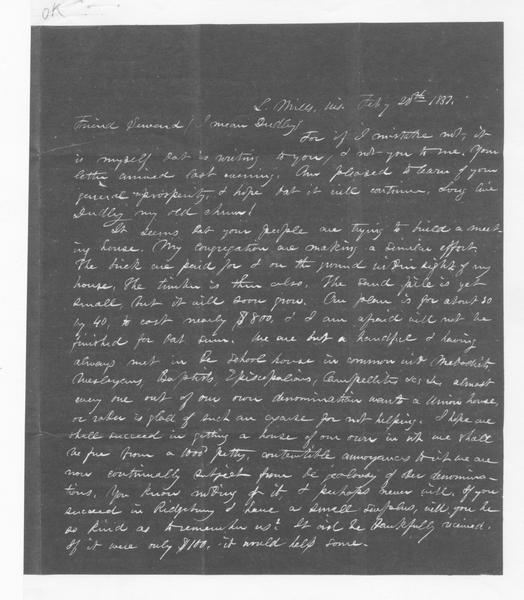 OK
L. Mills, Wis. Feby 20th 1857.
Friend Seward! I mean Dudley!
For if I mistake not, it
is myself dat is writing to you, & not you to me. Your
letter arrived last evening. Am pleased to learn of your
general prosperity, & hope dat it will continue. Long live
Dudley my old chum!
It seems dat your people are trying to build a meet-
ing house. My congregation are making a similar effort.
The brick are paid for & on the ground within sight of my
house, the timber is there also. The sand pile is yet
small, but it will soon grow. Our plan is for about 30
by 40, to cost nearly $800, & I am afraid will not be
finished for dat sum. We are but a handful & having
always met in de school house in common wit Methodists,
Wesleyans, Baptists, Episcopalians, Campbellites &c &c, almost
every one out of our own denomination wants a Union house,
or rader is glad of such an excuse for not helping. I hope we
shall succeed in getting a house of our own in wh we shall
be free from a 1000 petty, contemptible annoyances to wh we are
now continually subject from de jealousy of oder denomina-
tions. You know noding of it & perhaps never will. If you
succeed in Ridgebury & have a small surplus, will you be
so kind as to remember us? It wd be thankfully received.
If it were only $100. it would help some.